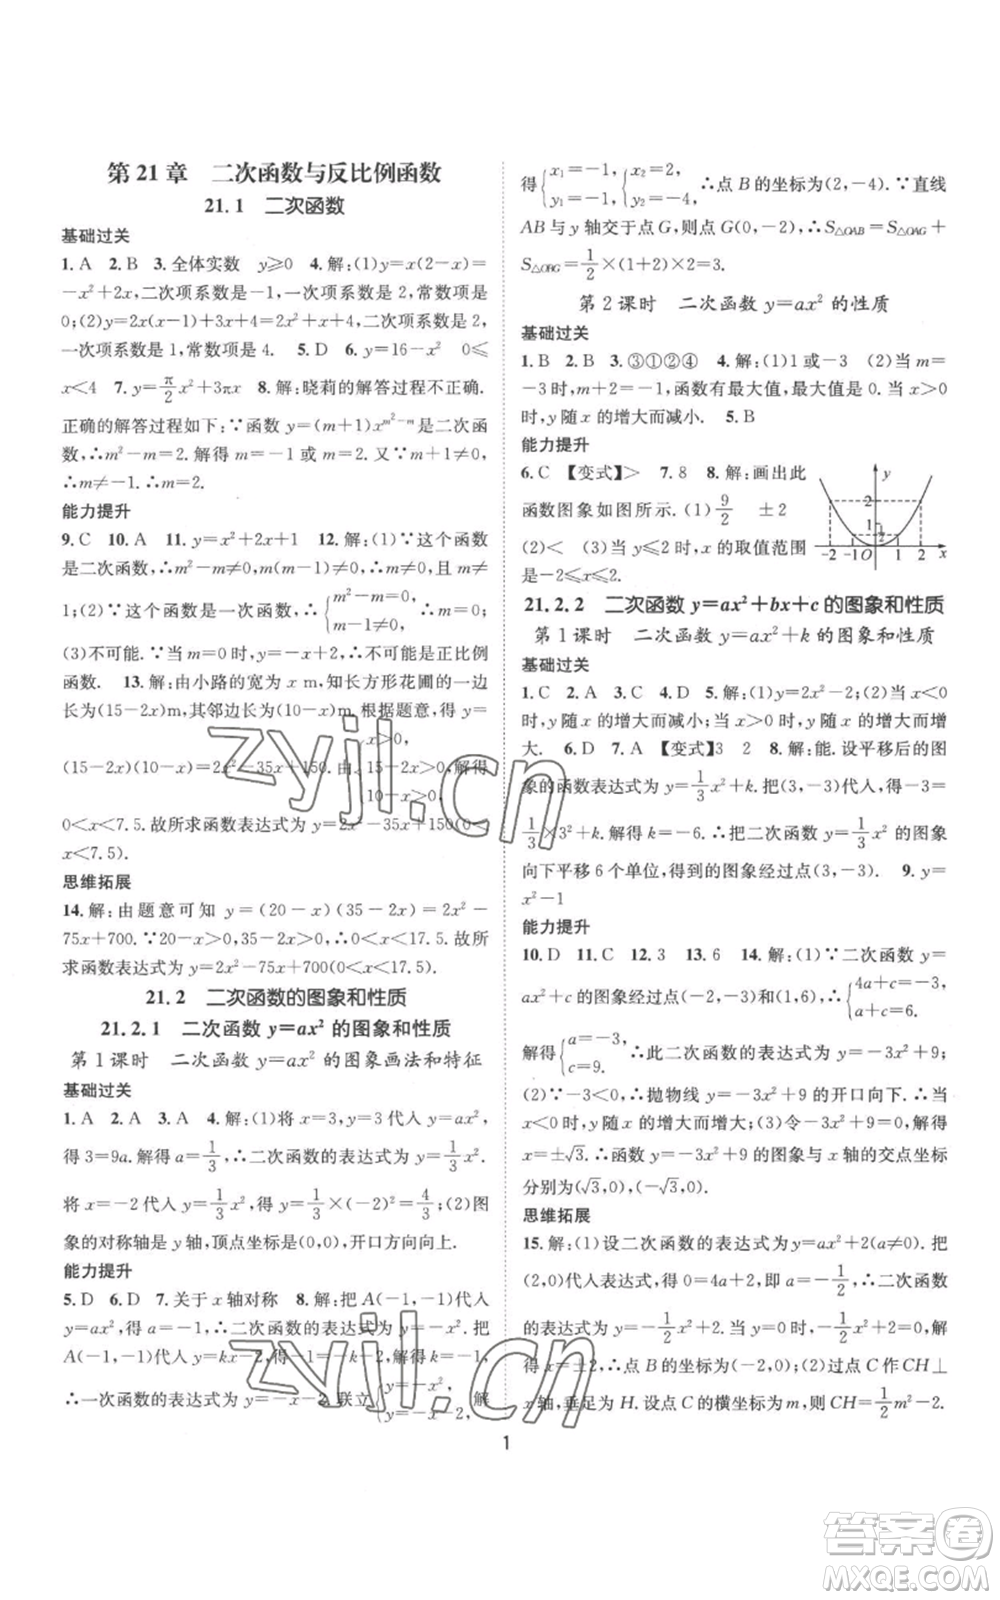 第 21 章　二次函数与反比例函数
21.1　二次函数
基础过关
1. A　2. B　3. 全体实数　y≥0　4. 解:(1)y=x(2-x)=
-x²+2x,二次项系数是-1,一次项系数是 2,常数项是
0;(2)y=2x(x-1)+3x+4=2x²+x+4,二次项系数是 2,
一次项系数是 1,常数项是 4.　5. D　6. y=16-x²　0≤
x<4　7. y=π/2 x²+3πx　8. 解:晓莉的解答过程不正确.
正确的解答过程如下:∵函数 y=(m+1)x^(m²-m)是二次函
数,∴m²-m=2. 解得 m=-1 或 m=2. 又∵m+1≠0,
∴m≠-1. ∴m=2.
能力提升
9. C　10. A　11. y=x²+2x+1　12. 解:(1)∵这个函数
是二次函数,∴m²-m≠0. ∴m(m-1)≠0. ∴m≠0 且 m≠
1;(2)∵这个函数是一次函数,∴{m²-m=0, m-1≠0, ∴m=0;
(3)不可能. ∵当 m=0 时,y=-x+2,∴不可能是正比例
函数.　13. 解:由小路的宽为 x m,知长方形花圃的一边
长为(15-2x)m,其邻边长为(10-x)m. 根据题意,得 y=
(15-2x)(10-x)=2x²-35x+150. 由{x>0, 15-2x>0, 10-x>0, 解得
0<x<7.5. 故所求函数表达式为 y=2x²-35x+150(0<
x<7.5).
思维拓展
14. 解:由题意可知 y=(20-x)(35-2x)=2x²-
75x+700. ∵20-x>0,35-2x>0,∴0<x<17.5. 故所
求函数表达式为 y=2x²-75x+700(0<x<17.5).
21.2　二次函数的图象和性质
21.2.1　二次函数 y=ax² 的图象和性质
第 1 课时　二次函数 y=ax² 的图象画法和特征
基础过关
1. A　2. A　3. A　4. 解:(1)将 x=3,y=3 代入 y=ax²,
得 3=9a. 解得 a=1/3. ∴二次函数的表达式为 y=1/3 x².
将 x=-2 代入 y=1/3 x²,得 y=1/3×(-2)²=4/3;(2)图
象的对称轴是 y 轴,顶点坐标是(0,0),开口方向向上.
能力提升
5. D　6. D　7. 关于 x 轴对称　8. 解:把 A(-1,-1)代入
y=ax²,得 a=-1,∴二次函数的表达式为 y=-x². 把
A(-1,-1)代入 y=kx-2,得 k=-1,
∴一次函数的表达式为 y=-x-2. 联立{y=-x², y=-x-2, 解
得{x₁=-1, y₁=-1, {x₂=2, y₂=-4, ∴点 B 的坐标为(2,-4). ∵直线
AB 与 y 轴交于点 G,则点 G(0,-2),∴S△OAB=S△OAG+
S△OBG=1/2×(1+2)×2=3.
第 2 课时　二次函数 y=ax² 的性质
基础过关
1. B　2. B　3. ③①②④　4. 解:(1)1 或-3　(2)当 m=
-3 时,m+2=-1,函数有最大值,最大值是 0. 当 x>0
时,y 随 x 的增大而减小.　5. B
能力提升
6. C　【变式】>　7. 8　8. 解:画出此
函数图象如图所示. (1)9/2　±2
(2)<　(3)当 y≤2 时,x 的取值范围
是-2≤x≤2.
y
2
1
-2 -1 O 1 2 x
21.2.2　二次函数 y=ax²+bx+c 的图象和性质
第 1 课时　二次函数 y=ax²+k 的图象和性质
基础过关
1. C　2. A　3. C　4. C　5. 解:(1)y=2x²-2;(2)当 x<0
时,y 随 x 的增大而减小;当 x>0 时,y 随 x 的增大而增
大.　6. D　7. A　【变式】3　2　8. 解:能. 设平移后的图
象的函数表达式为 y=1/3 x²+k. 把(3,-3)代入,得-3=
1/3×3²+k. 解得 k=-6. ∴把二次函数 y=1/3 x² 的图象
向下平移 6 个单位,得到的图象经过点(3,-3).　9. y=
x²-1
能力提升
10. D　11. C　12. 3　13. 6　14. 解:(1)∵二次函数 y=
ax²+c 的图象经过点(-2,-3)和(1,6),∴{4a+c=-3, a+c=6.
解得{a=-3, c=9. ∴此二次函数的表达式为 y=-3x²+9;
(2)∵-3<0,∴抛物线 y=-3x²+9 的开口向下. ∴当
x<0 时,y 随 x 的增大而增大;(3)令-3x²+9=0,解得
x=±√3. ∴函数 y=-3x²+9 的图象与 x 轴的交点坐标
分别为(√3,0),(-√3,0).
思维拓展
15. 解:(1)设二次函数的表达式为 y=ax²+2(a≠0). 把
(2,0)代入表达式,得 0=4a+2,即 a=-1/2,∴二次函数
的表达式为 y=-1/2 x²+2. 当 y=0 时,-1/2 x²+2=0,解
得 x=±2,∴点 B 的坐标为(-2,0);(2)过点 C 作 CH⊥
x 轴,垂足为 H. 设点 C 的横坐标为 m,则 CH=1/2 m²-2.
1
zyjl.cn
zyjl.cn
答案卷
MXQE.COM